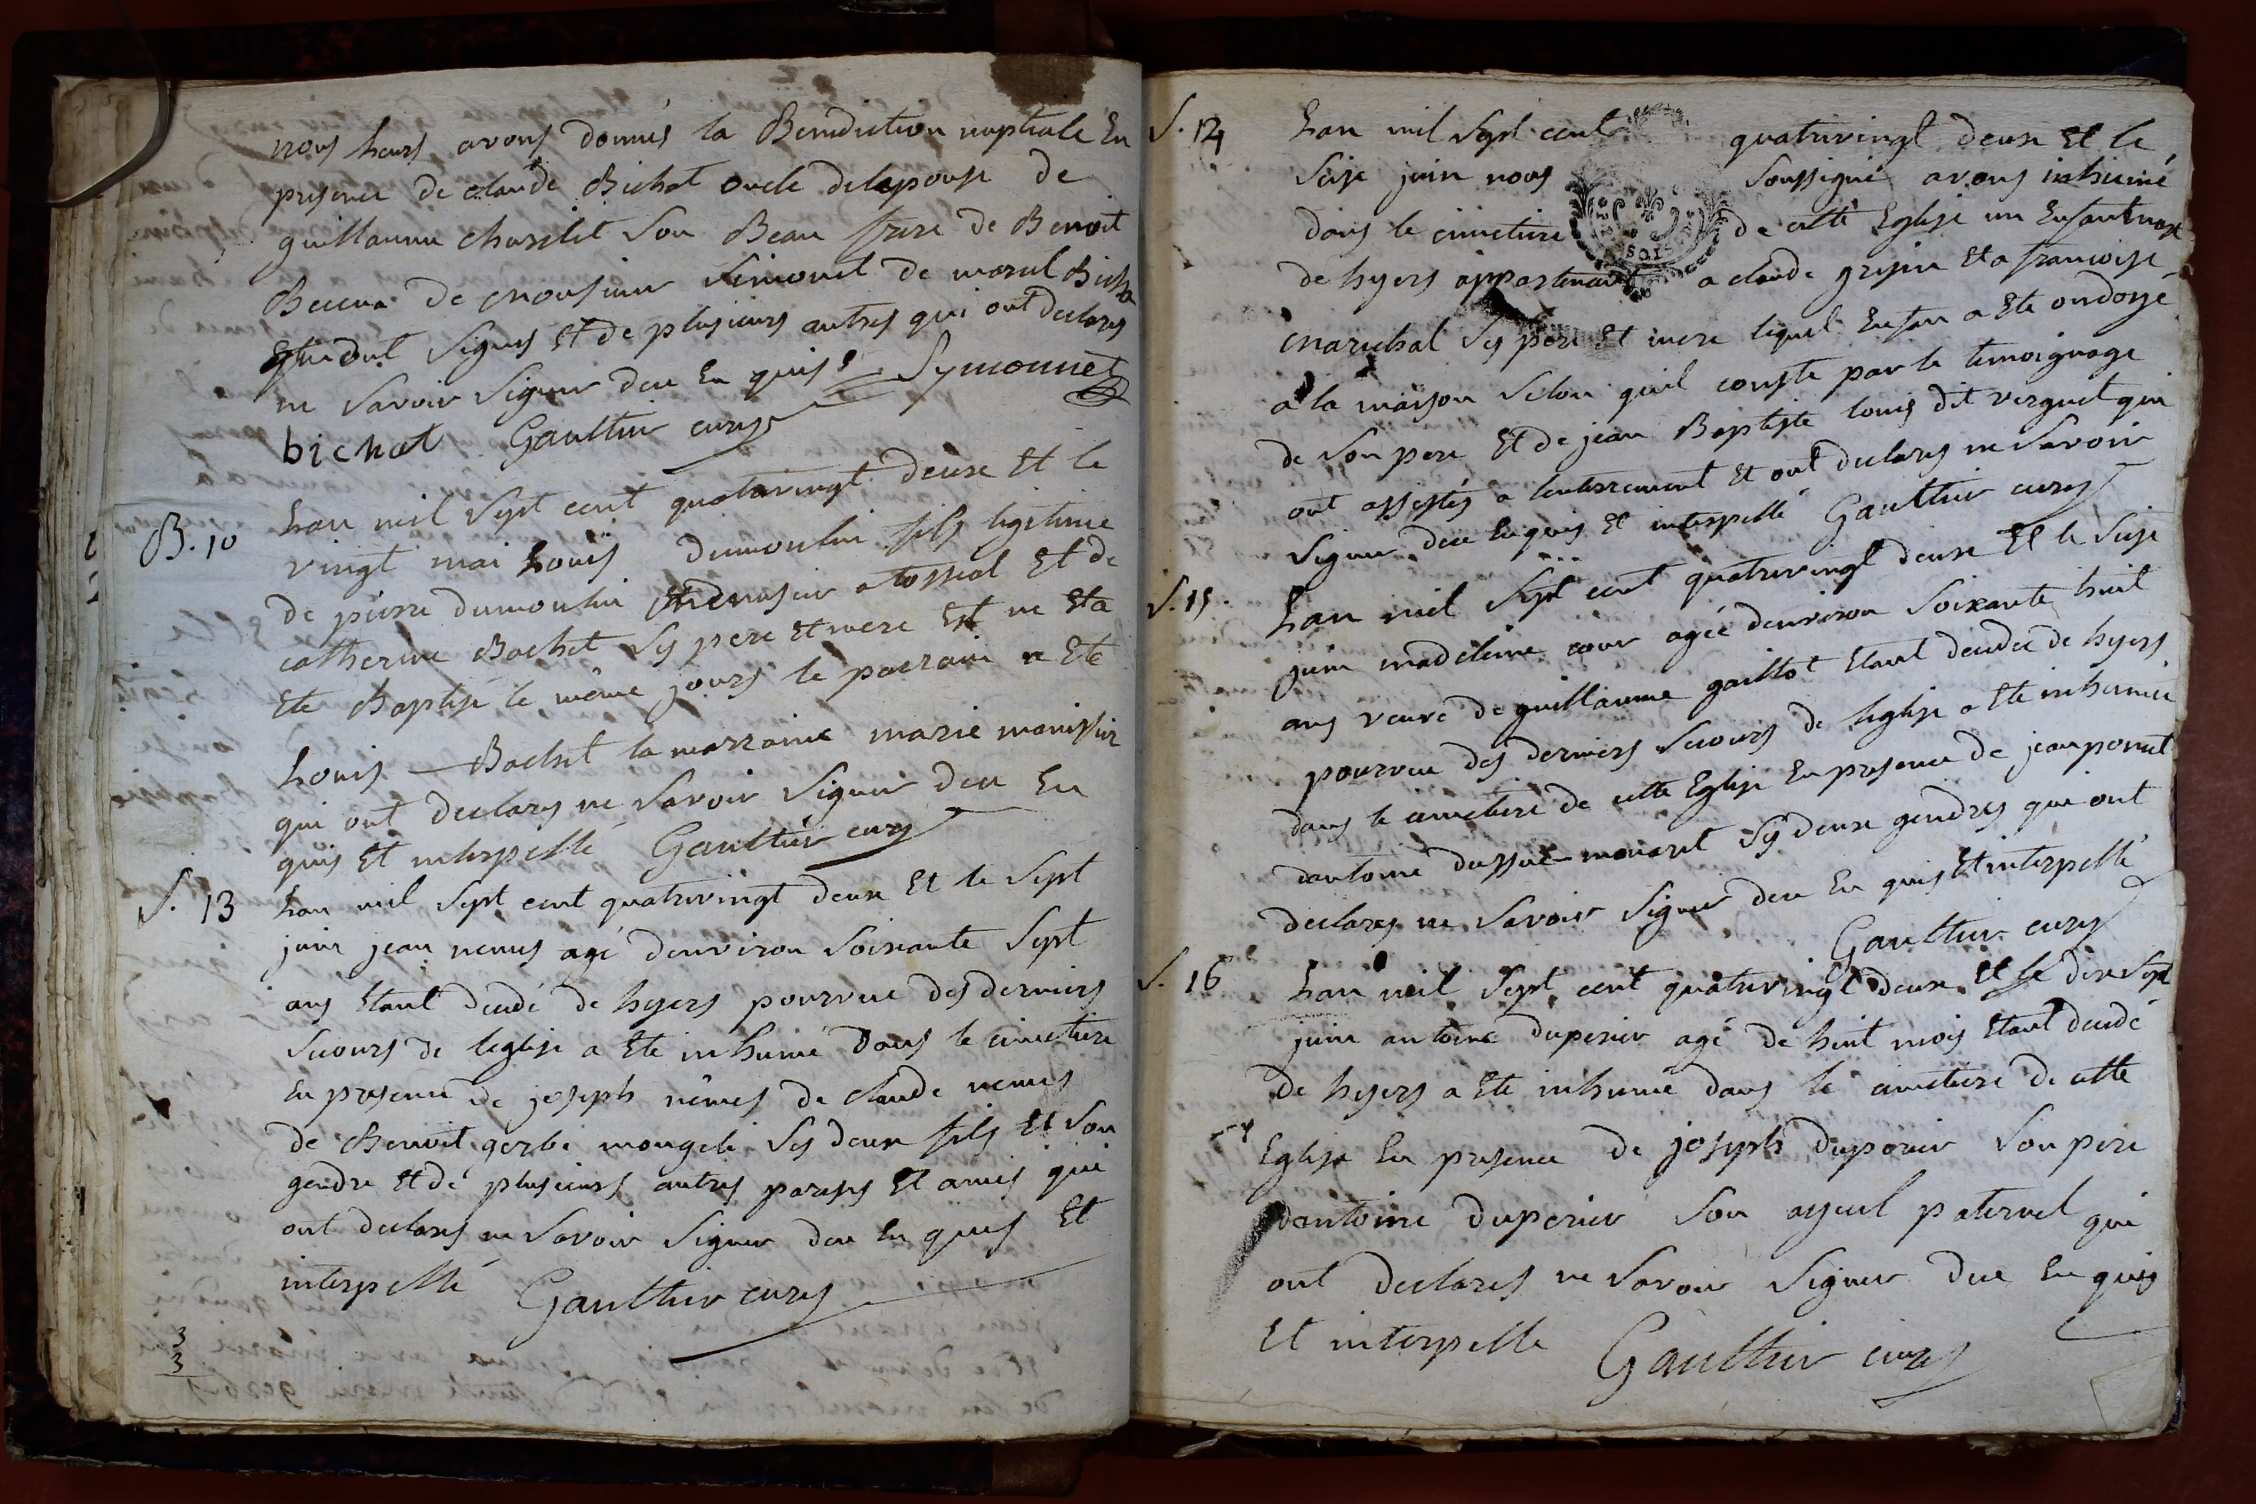 nous leurs avons donnés la Benediction nuptiale En
presence de claude Bichet oncle delepouse de
guillaume charelet Son Beau frere de Benoit
de monsieur Simonet de marcel Bichet
qui ont Signes Et de plusieurs autres qui ont declares
ne Savoir Signer deu En quis Symonnet
bichet Gaulthier curé
B. 10
Lan mil Sept cent quatrevingt deux Et le
vingt mai Louis dumoulin fils legitime
de pierre dumoulin Et de
catherine Bachet Ses pere Et mere Est ne Et a
Ete Baptise le même jours le parrain a Ete
Louis Bachet la marraine marie
qui ont declares ne Savoir Signer deu En
quis Et interpellé Gaulthier curé
S. 13
Lan mil Sept cent quatrevingt deux Et le Sept
juin jean nemes agé denviron Soixante Sept
ans Etant decedé de hyers pourvue des derniers
Secours de leglise a Ete inhumé Dans le cimetiere
En presence de joseph nêmes de claude nemes
de Benoit gerbe mongeli Ses deux fils Et Son
gendre Et dé plusieurs autres parens Et amis qui
ont declares ne Savoir Signer deu En quis Et
interpellé Gaulthier curé
3
3
S. 14
Lan mil Sept cent quatrevingt deux Et le
Seise juin nous Soussigné avons inhumé
dans le cimetiere de cette Eglise un Enfant
de hyers appartenant a claude Et a francoise
marechal Ses pere Et mere lequel Enfan a Ete ondoyé
a la maison Selon quil conste par le temoignage
de Son pere Et de jean Baptiste louis dit verguet qui
ont assistés a lenterrement Et ont declares ne Savoir
Signer deu Enquis Et interpellé Gaulthier curé
S. 15.
Lan mil Sept cent quatrevingt deux Et le Seise
juin madeleine cour agée denviron Soixante huit
ans veuve de guillaume gaillot Etant decedée de hyers
pourvue des derniers Secours de leglise a Ete inhumée
dans le cimetiere de cette Eglise En presence de jean ponnet
dantoine Ses deux gendres qui ont
declares ne Savoir Signer deu En quis Et interpellé
Gaulthier curé
S. 16
Lan mil Sept cent quatrevingt deux Et le dix Sept
juin antoine duperier agé de huit mois Etant decedé
de hyers a Ete inhumé dans le cimetiere de cette
Eglise En presence de joseph duperier Son pere
dantoine duperier Son ayeul paternel qui
ont declares ne Savoir Signer deu En quis
Et interpelle Gaulthier curé